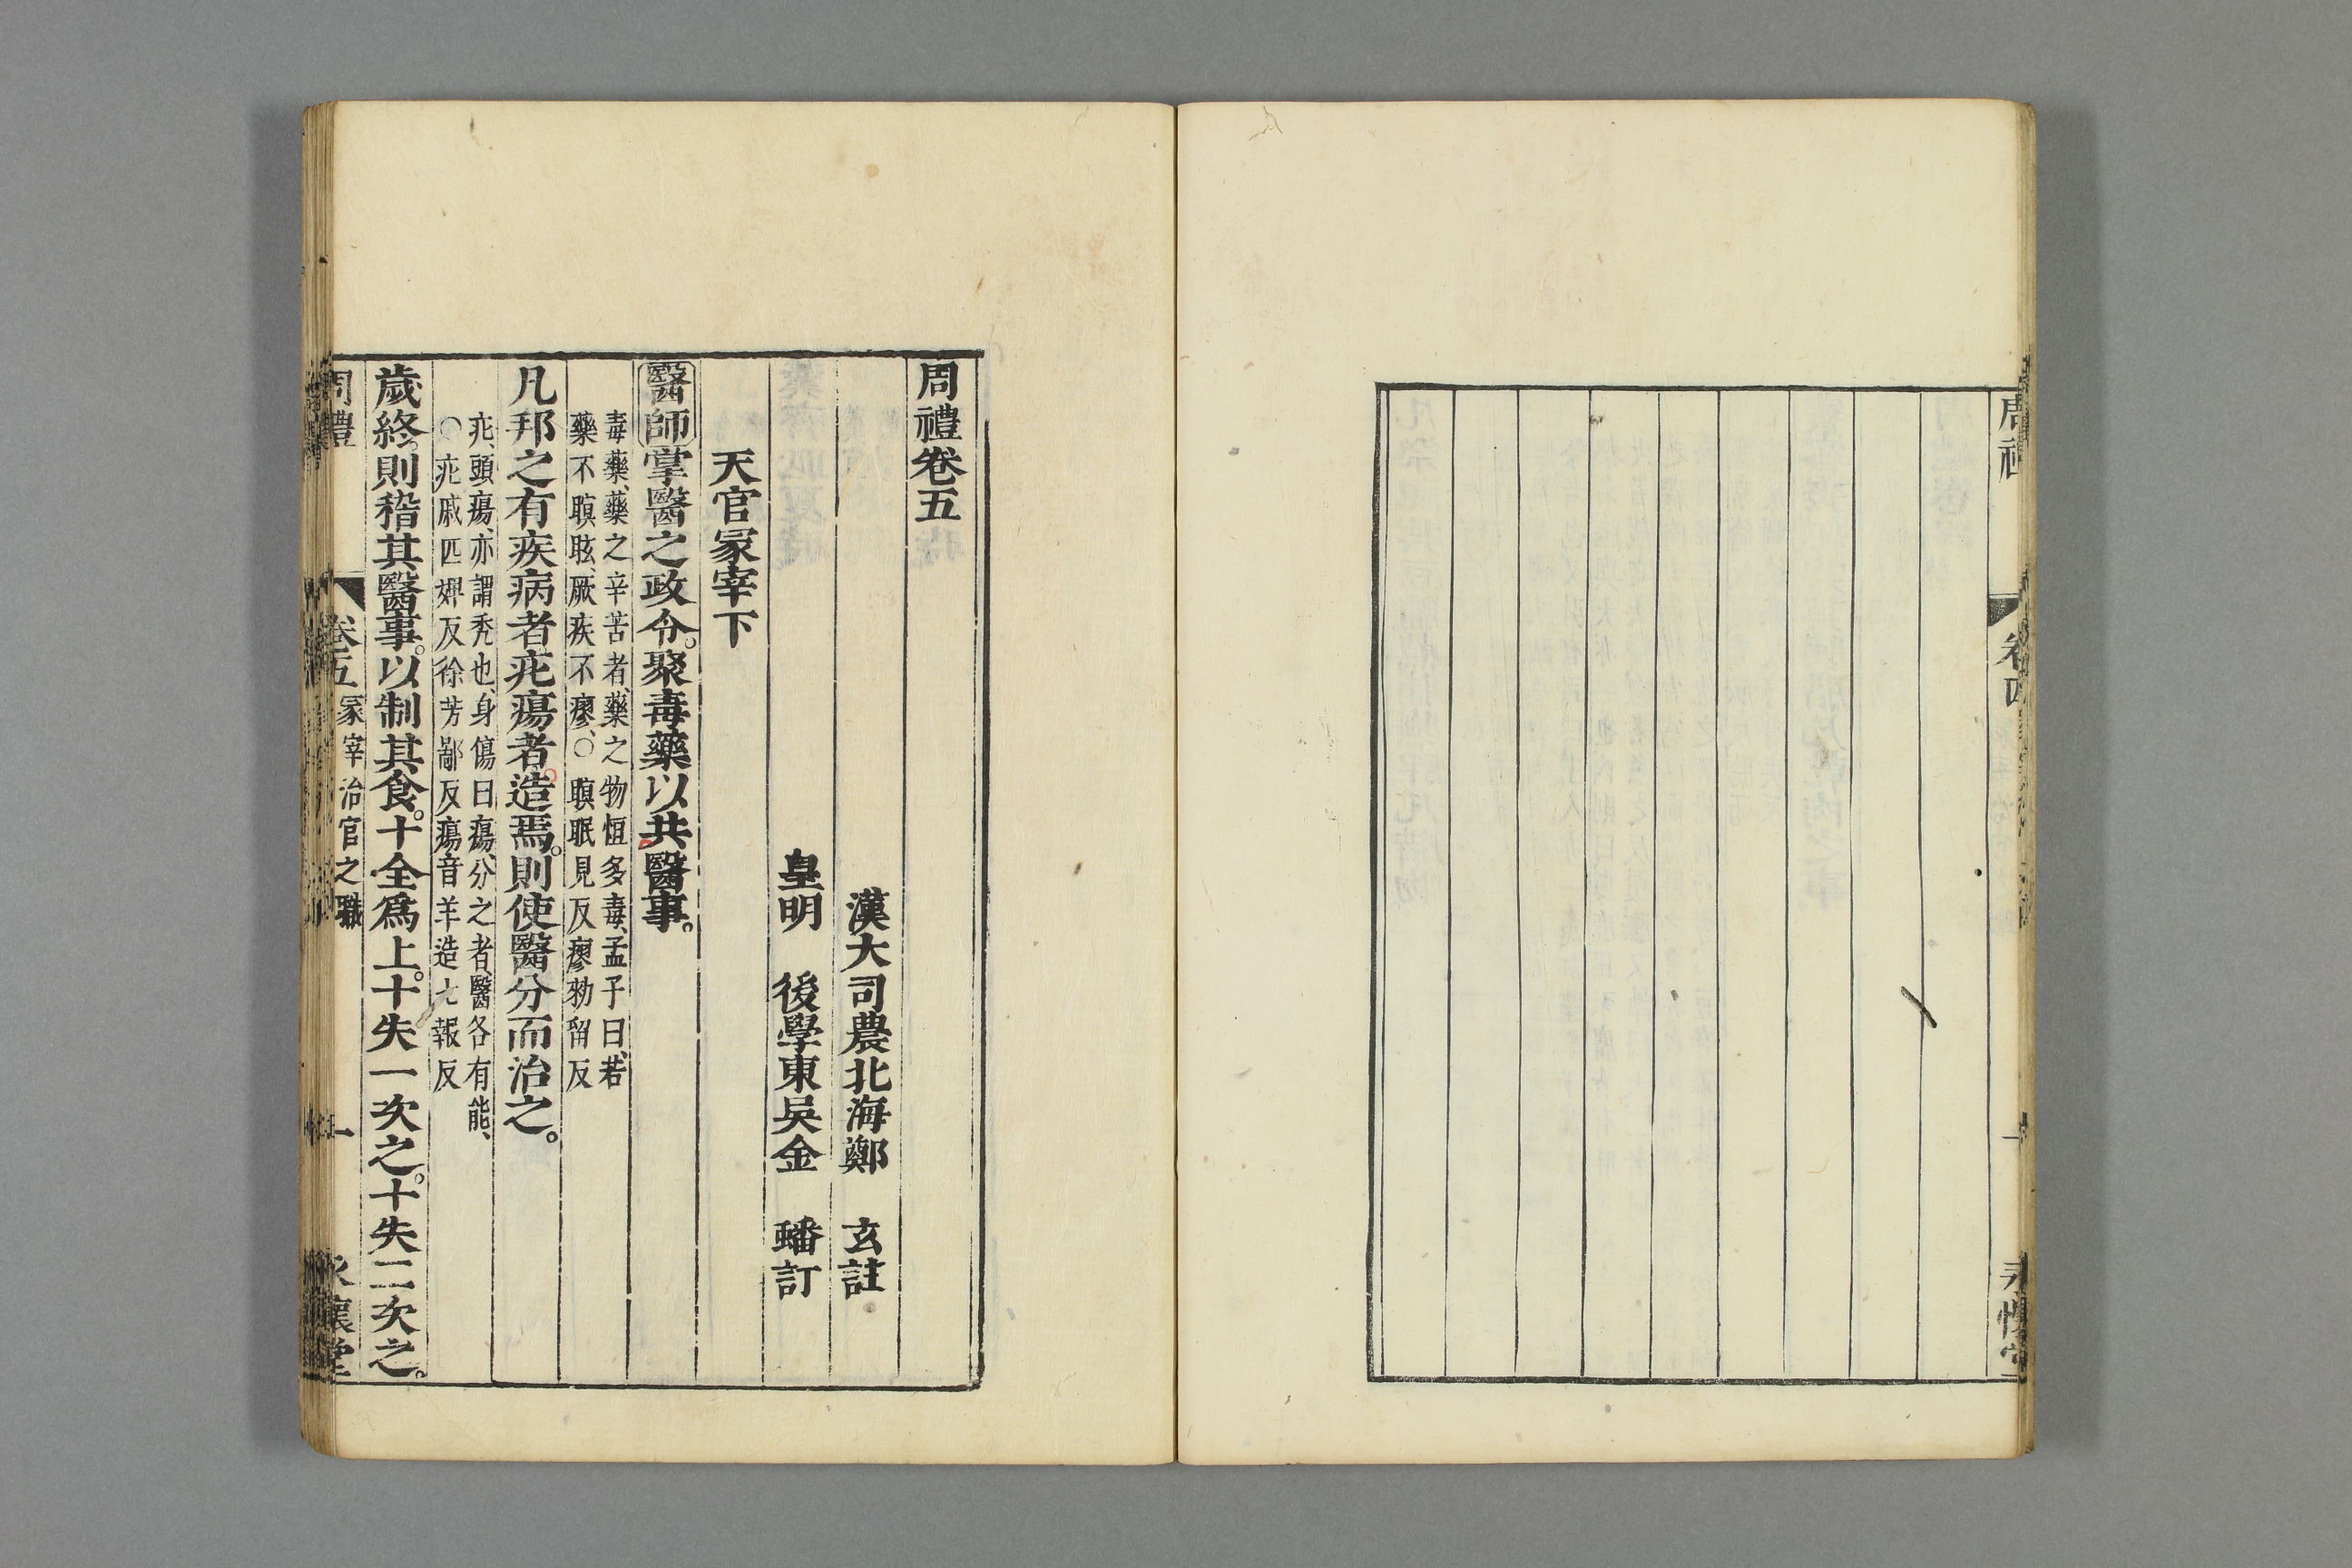 周禮
卷四
永懷堂
周禮卷五
漢大司農北海鄭 玄註
皇明 後學東吳金 蟠訂
天官冢宰下
醫師掌醫之政令。聚毒藥以共醫事。
毒藥、藥之辛苦者、藥之物恒多毒、孟子曰、若
藥不瞑眩、厥疾不瘳、○瞑眠見反瘳勑留反
凡邦之有疾病者疕瘍者造焉。則使醫分而治之。
疕、頭瘍、亦謂秃也、身傷曰瘍、分之者、醫各有能、
○疕戚匹婢反徐芳鄙反瘍音羊造七報反
歲終。則稽其醫事。以制其食。十全爲上。十失一次之。十失二次之。
周禮
卷五 冢宰治官之職
一
永懷堂